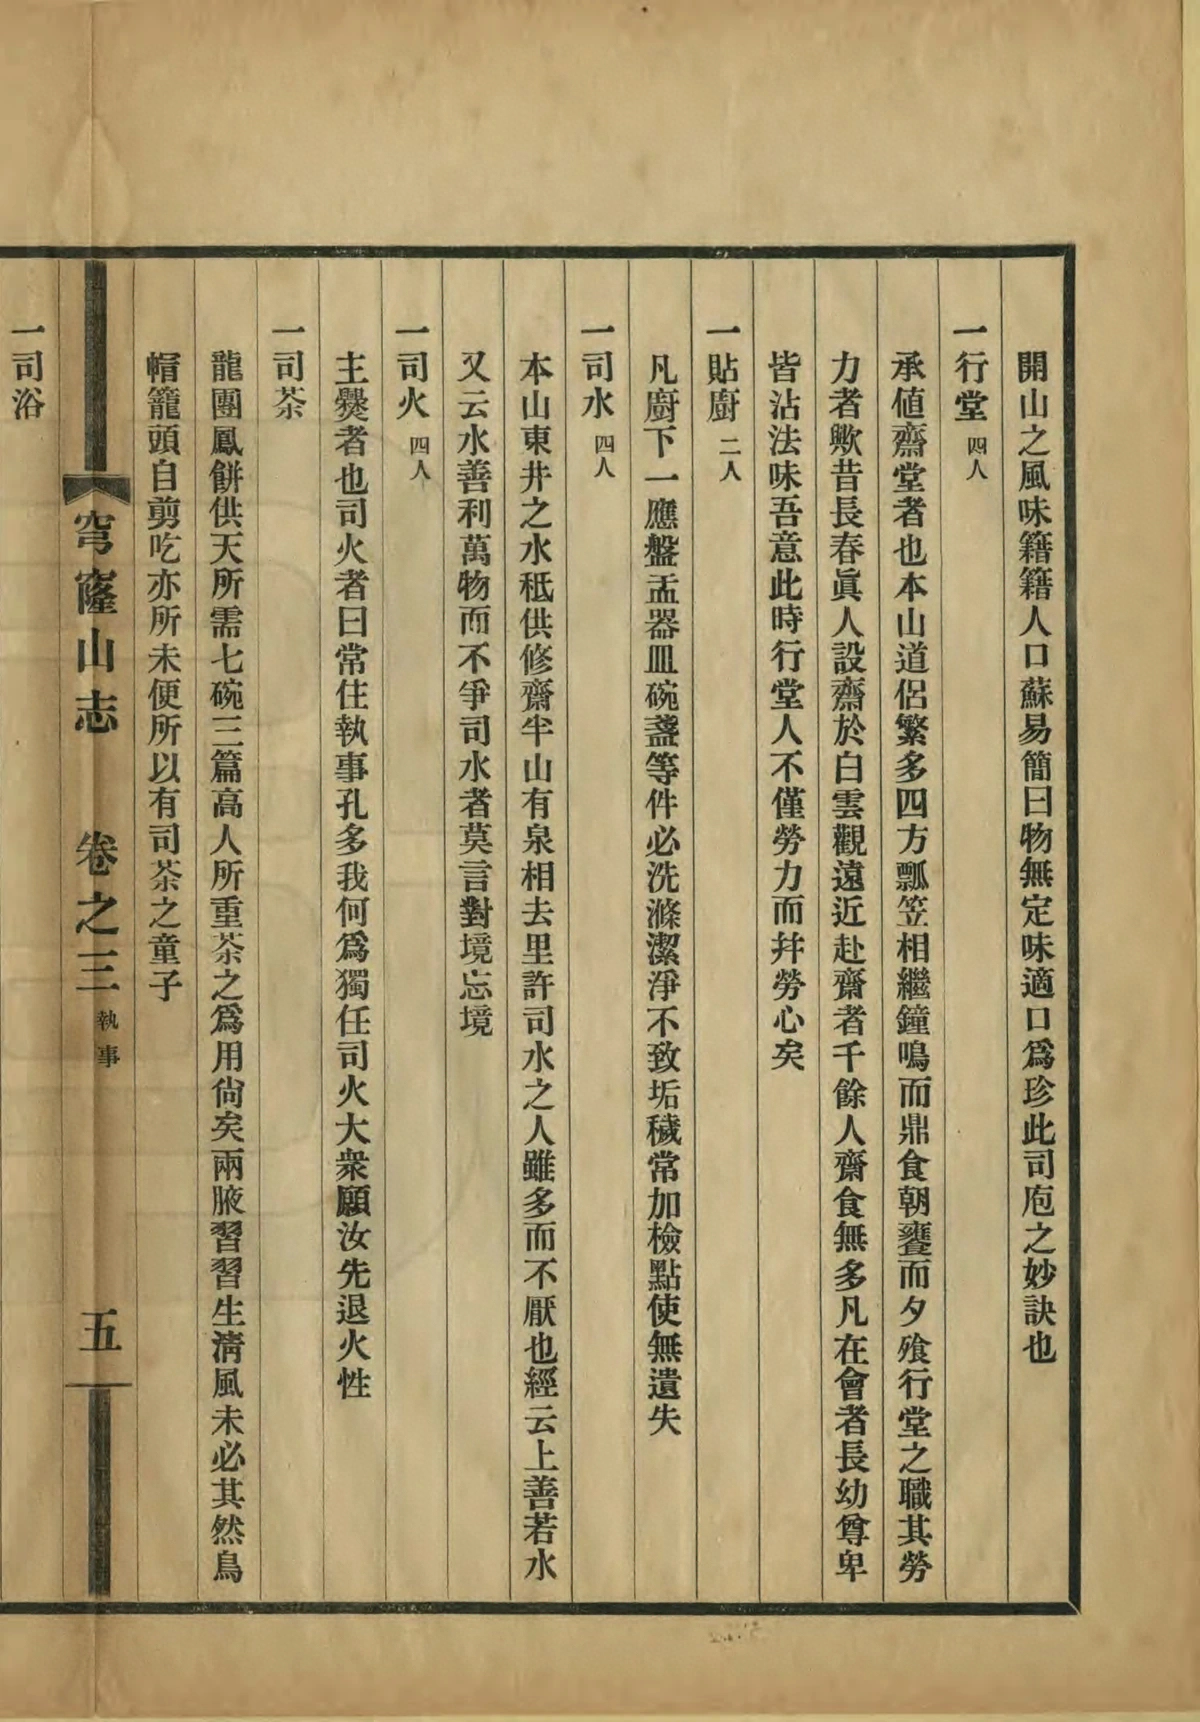 開山之風味籍籍人口蘇易簡曰物無定味適口爲珍此司庖之妙訣也
一行堂 四人
承值齋堂者也本山道侶繁多四方瓢笠相繼鐘鳴而鼎食朝饔而夕飧行堂之職其勞
力者歟昔長春眞人設齋於白雲觀遠近赴齋者千餘人齋食無多凡在會者長幼尊卑
皆沾法味吾意此時行堂人不僅勞力而幷勞心矣
一貼廚 二人
凡廚下一應盤盂器皿碗盞等件必洗滌潔淨不致垢穢常加檢點使無遺失
一司水 四人
本山東井之水秪供修齋半山有泉相去里許司水之人雖多而不厭也經云上善若水
又云水善利萬物而不爭司水者莫言對境忘境
一司火 四人
主爨者也司火者曰常住執事孔多我何爲獨任司火大衆願汝先退火性
一司茶
龍團鳳餅供天所需七碗三篇高人所重茶之爲用尙矣兩腋習習生淸風未必其然烏
帽籠頭自剪吃亦所未便所以有司茶之童子
穹窿山志 卷之三 執事 五
一司浴